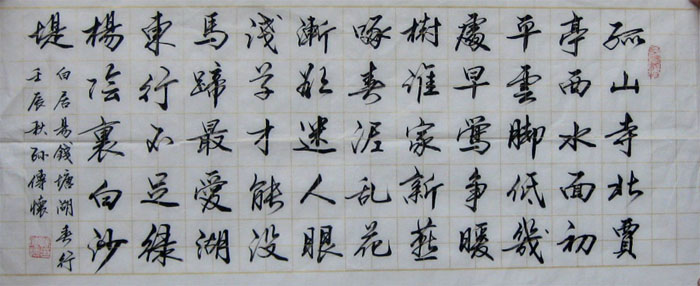 孤山寺北賈
亭西水面初
平雲脚低幾
處早鶯争暖
樹誰家新燕
啄春泥乱花
漸欲迷人眼
淺草才能没
馬蹄最愛湖
東行不足緑
楊陰裏白沙
堤
白居易錢塘湖春行
壬辰秋孙傳懷